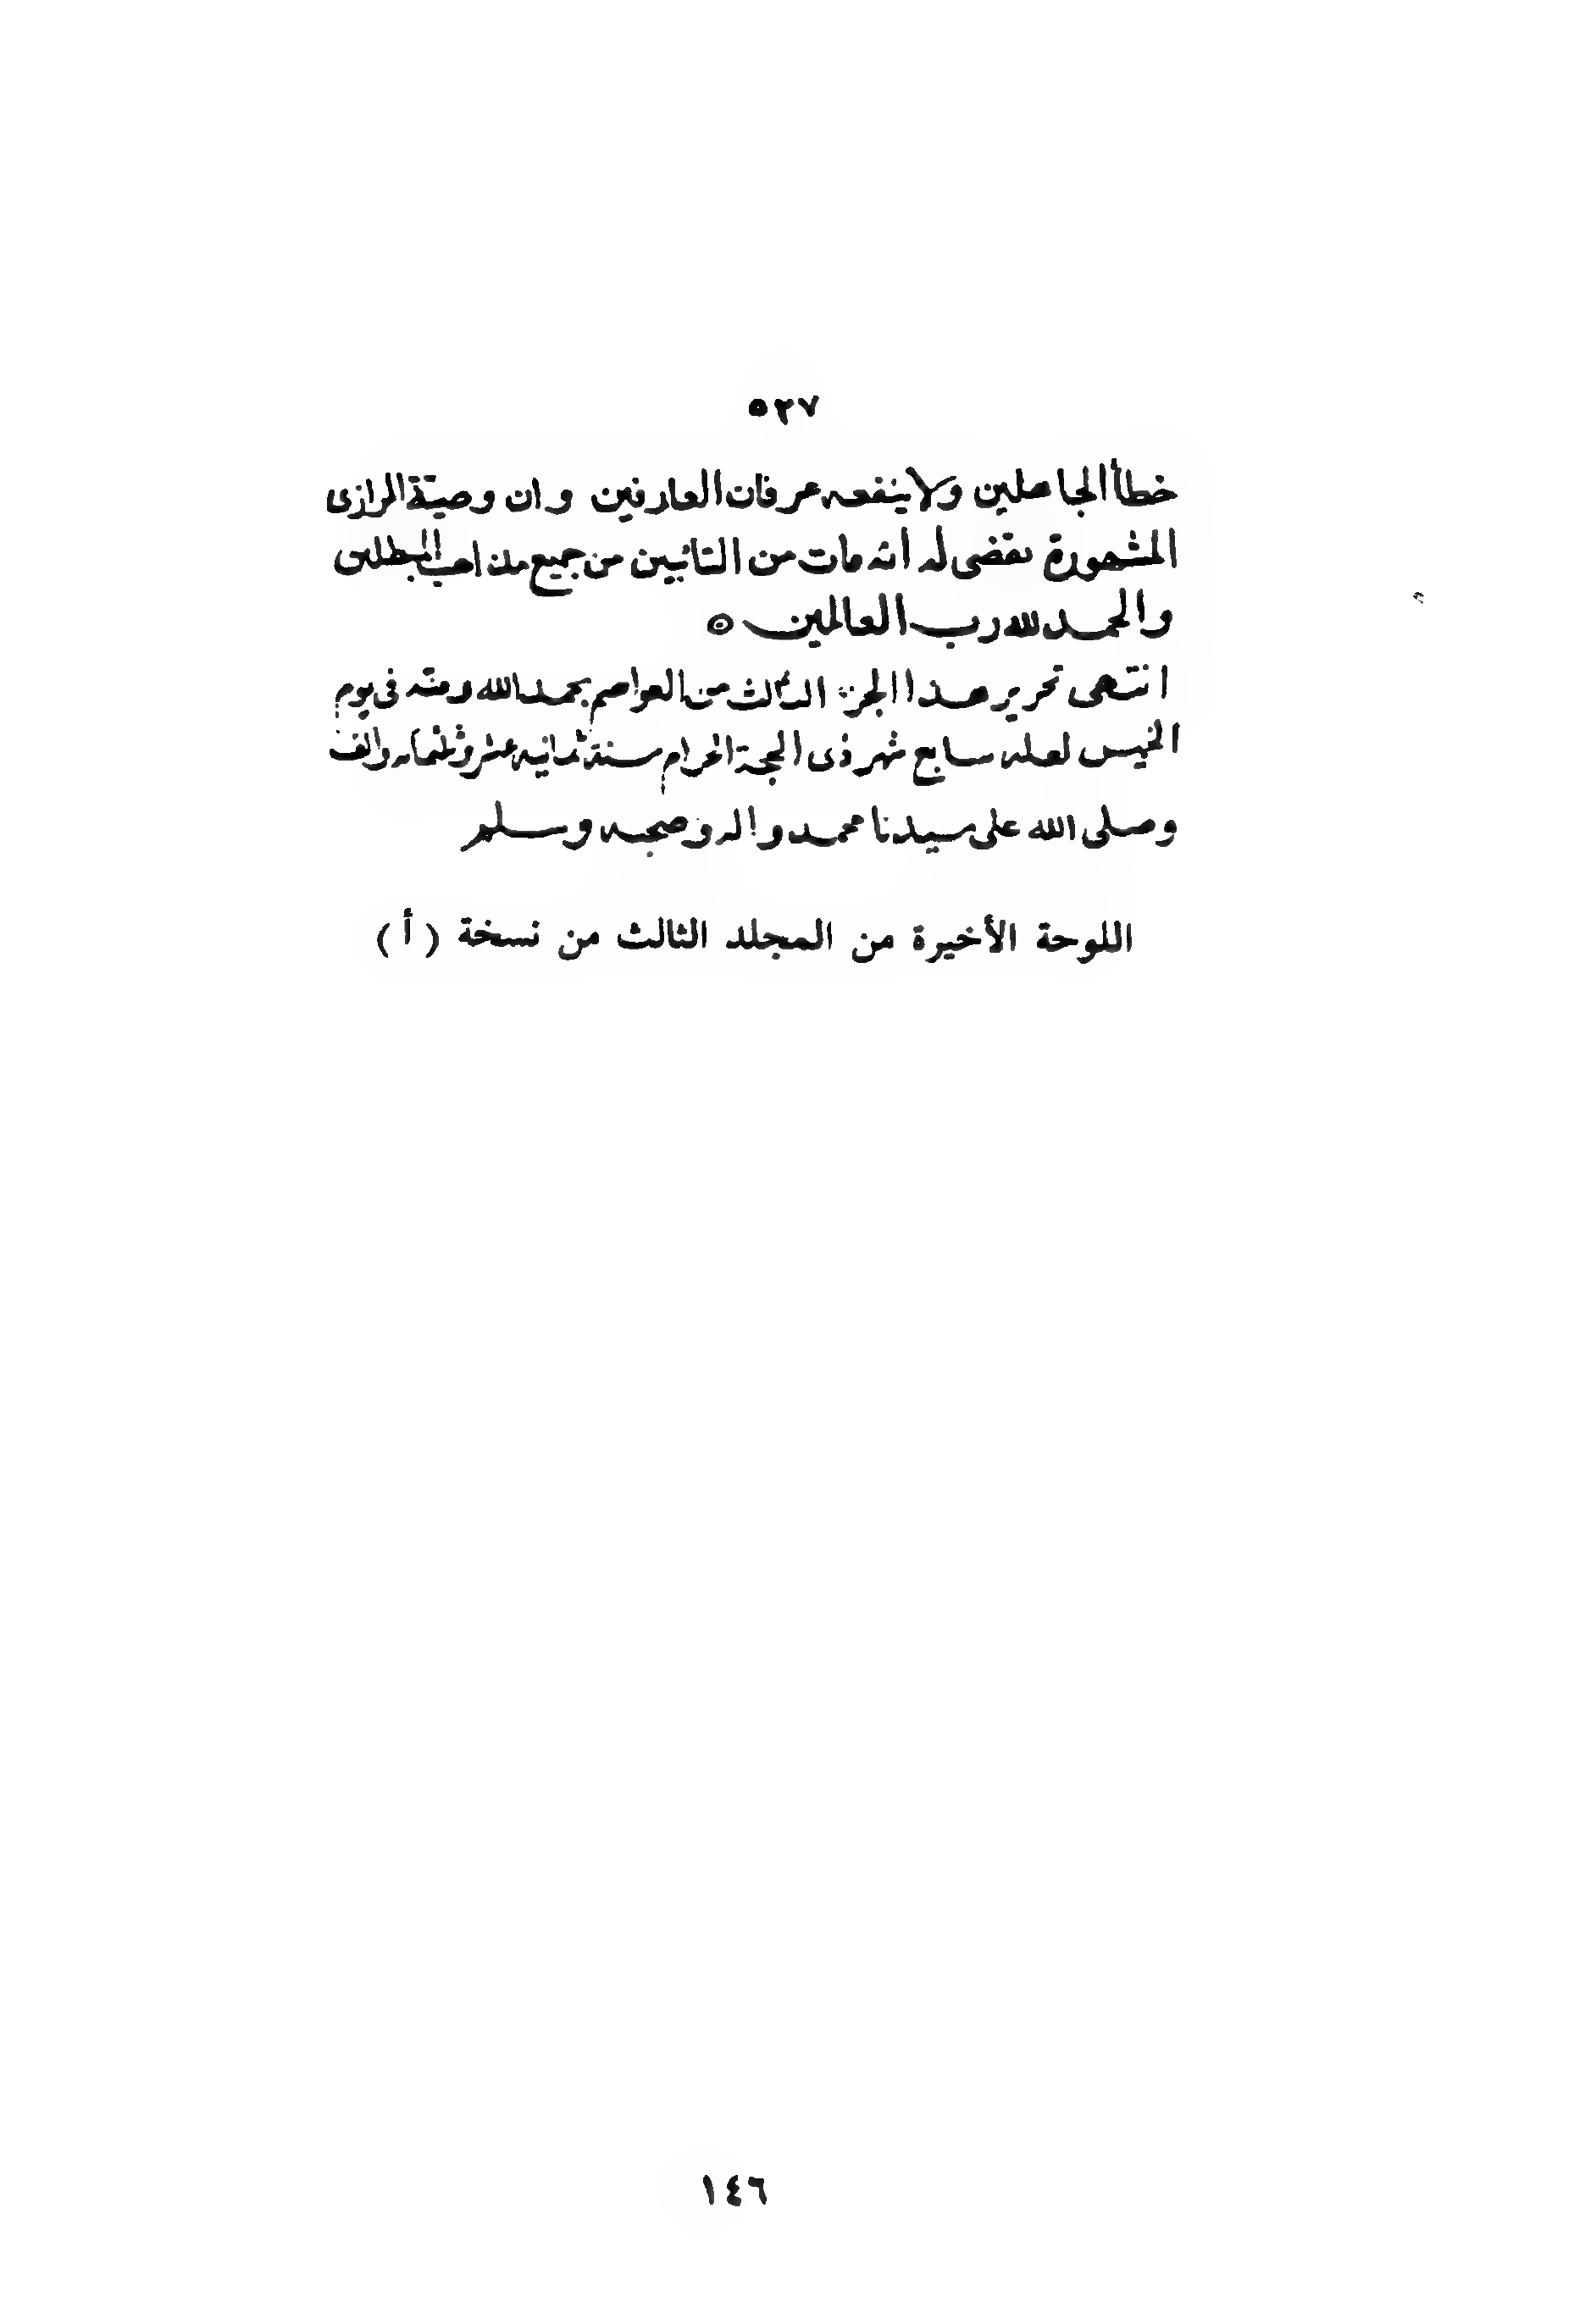 ٥٢٧
خطأ الجاهلين ولا ينفعه عرفان العارفين وان وصيّة الرازى
المشهورة تقضى له أنه مات من التائبين من جميع مذاهب المبطلين
والحمد لله رب العالمين ٥
انتهى تحرير هذا الجزء الثالث من العواصم بحمد الله ومنّه فى يوم
الخميس لعله سابع شهر ذى الحجة الحرام سنة ثمانيه عشر وثلثمايه والف
وصلى الله على سيدنا محمد واله وصحبه وسلم
اللوحة الأخيرة من المجلد الثالث من نسخة ( أ )
١٤٦